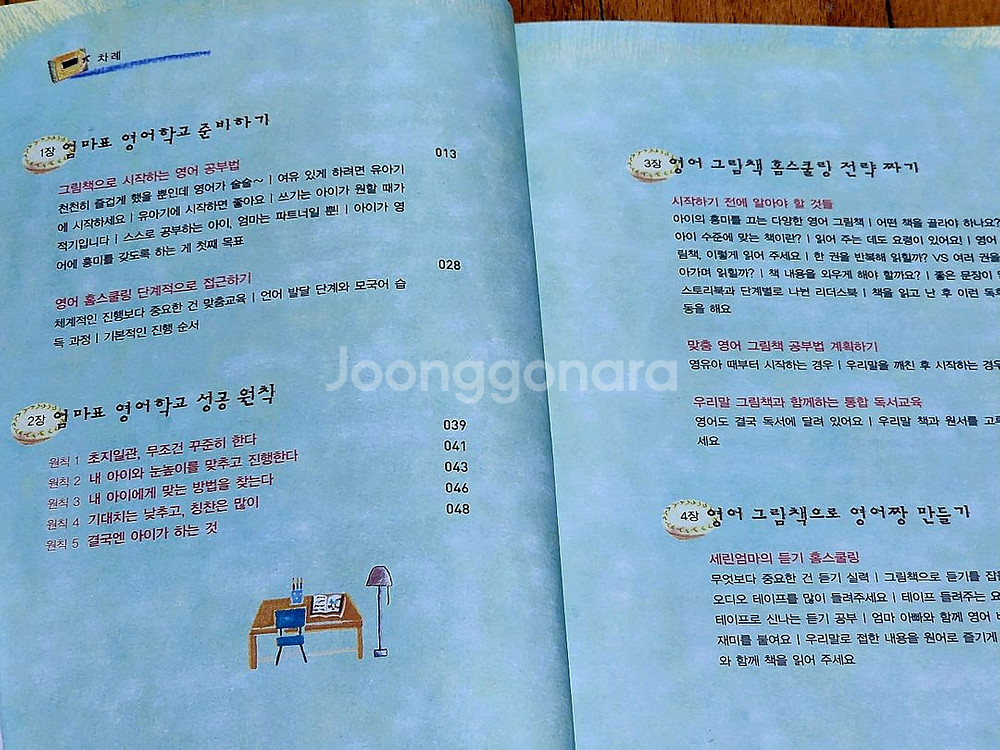 차례
1장 엄마표 영어학교 준비하기
그림책으로 시작하는 영어 공부법 013
천천히 즐겁게 했을 뿐인데 영어가 술술~ | 여유 있게 하려면 유아기
에 시작하세요 | 유아기에 시작하면 좋아요 | 쓰기는 아이가 원할 때가
적기입니다 | 스스로 공부하는 아이, 엄마는 파트너일 뿐! | 아이가 영
어에 흥미를 갖도록 하는 게 첫째 목표
영어 홈스쿨링 단계적으로 접근하기 028
체계적인 진행보다 중요한 건 맞춤교육 | 언어 발달 단계와 모국어 습
득 과정 | 기본적인 진행 순서
2장 엄마표 영어학교 성공 원칙
원칙 1 초지일관, 무조건 꾸준히 한다 039
원칙 2 내 아이와 눈높이를 맞추고 진행한다 041
원칙 3 내 아이에게 맞는 방법을 찾는다 043
원칙 4 기대치는 낮추고, 칭찬은 많이 046
원칙 5 결국엔 아이가 하는 것 048
3장 영어 그림책 홈스쿨링 전략 짜기
시작하기 전에 알아야 할 것들
아이의 흥미를 끄는 다양한 영어 그림책 | 어떤 책을 골라야 하나요?
아이 수준에 맞는 책이란? | 읽어 주는 데도 요령이 있어요! | 영어
림책, 이렇게 읽어 주세요 | 한 권을 반복해 읽힐까? VS 여러 권을
아가며 읽힐까? | 책 내용을 외우게 해야 할까요? | 좋은 문장이
스토리북과 단계별로 나뉜 리더스북 | 책을 읽고 난 후 이런 독후
동을 해요
맞춤 영어 그림책 공부법 계획하기
영유아 때부터 시작하는 경우 | 우리말을 깨친 후 시작하는 경우
우리말 그림책과 함께하는 통합 독서교육
영어도 결국 독서에 달려 있어요 | 우리말 책과 원서를 고루
세요
4장 영어 그림책으로 영어짱 만들기
세린엄마의 듣기 홈스쿨링
무엇보다 중요한 건 듣기 실력 | 그림책으로 듣기를
오디오 테이프를 많이 들려주세요 | 테이프 들려주는
테이프로 신나는 듣기 공부 | 엄마 아빠와 함께 영어
재미를 붙여요 | 우리말로 접한 내용을 원어로 즐기게
와 함께 책을 읽어 주세요
Joonggonara